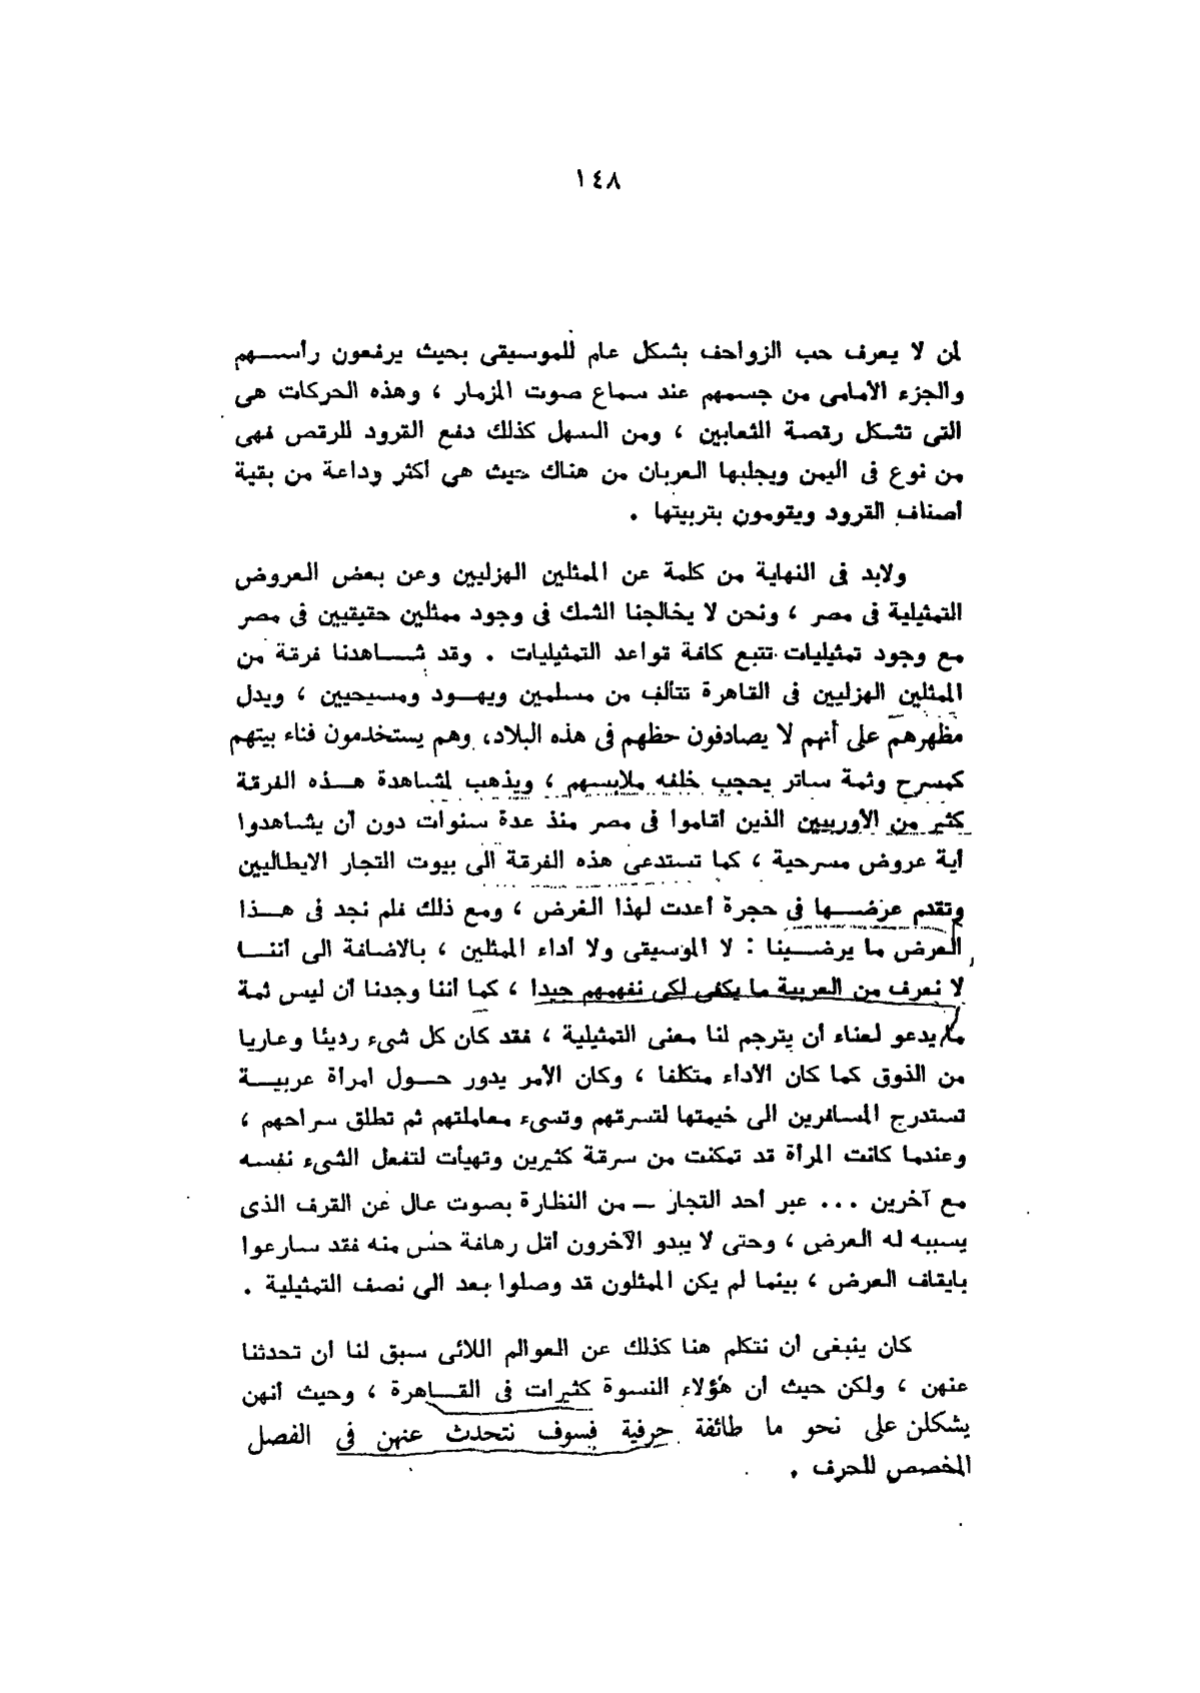 ١٤٨
لمن لا يعرف حب الزواحف بشكل عام للموسيقى بحيث يرفعون رأسهم
والجزء الأمامى من جسمهم عند سماع صوت المزمار ، وهذه الحركات هى
التى تشكل رقصة الثعابين ، ومن السهل كذلك دفع القرود للرقص فهى
من نوع فى اليمن ويجلبها العربان من هناك حيث هى أكثر وداعة من بقية
أصناف القرود ويقومون بتربيتها .
ولابد فى النهاية من كلمة عن الممثلين الهزليين وعن بعض العروض
التمثيلية فى مصر ، ونحن لا يخالجنا الشك فى وجود ممثلين حقيقيين فى مصر
مع وجود تمثيليات تتبع كافة قواعد التمثيليات . وقد شاهدنا فرقة من
الممثلين الهزليين فى القاهرة تتألف من مسلمين ويهود ومسيحيين ، ويدل
مظهرهم على أنهم لا يصادفون حظهم فى هذه البلاد، وهم يستخدمون فناء بيتهم
كمسرح وثمة ساتر يحجب خلفه ملابسهم ، ويذهب لمشاهدة هذه الفرقة
كثير من الأوربيين الذين أقاموا فى مصر منذ عدة سنوات دون أن يشاهدوا
أية عروض مسرحية ، كما تستدعى هذه الفرقة الى بيوت التجار الايطاليين
وتقدم عرضها فى حجرة أعدت لهذا الغرض ، ومع ذلك فلم نجد فى هذا
العرض ما يرضينا : لا الموسيقى ولا أداء الممثلين ، بالاضافة الى أننا
لا نعرف من العربية ما يكفى لكى نفهمهم جيدا ، كما أننا وجدنا أن ليس ثمة
ما يدعو لعناء أن يترجم لنا معنى التمثيلية ، فقد كان كل شىء رديئا وعاريا
من الذوق كما كان الأداء متكلفا ، وكان الأمر يدور حول امرأة عربية
تستدرج المسافرين الى خيمتها لتسرقهم وتسىء معاملتهم ثم تطلق سراحهم ،
وعندما كانت المرأة قد تمكنت من سرقة كثيرين وتهيأت لتفعل الشىء نفسه
مع آخرين ... عبر أحد التجار — من النظارة بصوت عال عن القرف الذى
يسببه له العرض ، وحتى لا يبدو الآخرون أقل رهافة حس منه فقد سارعوا
بايقاف العرض ، بينما لم يكن الممثلون قد وصلوا بعد الى نصف التمثيلية .
كان ينبغى أن نتكلم هنا كذلك عن العوالم اللائى سبق لنا أن تحدثنا
عنهن ، ولكن حيث أن هؤلاء النسوة كثيرات فى القاهرة ، وحيث أنهن
يشكلن على نحو ما طائفة حرفية فسوف نتحدث عنهن فى الفصل
المخصص للحرف .